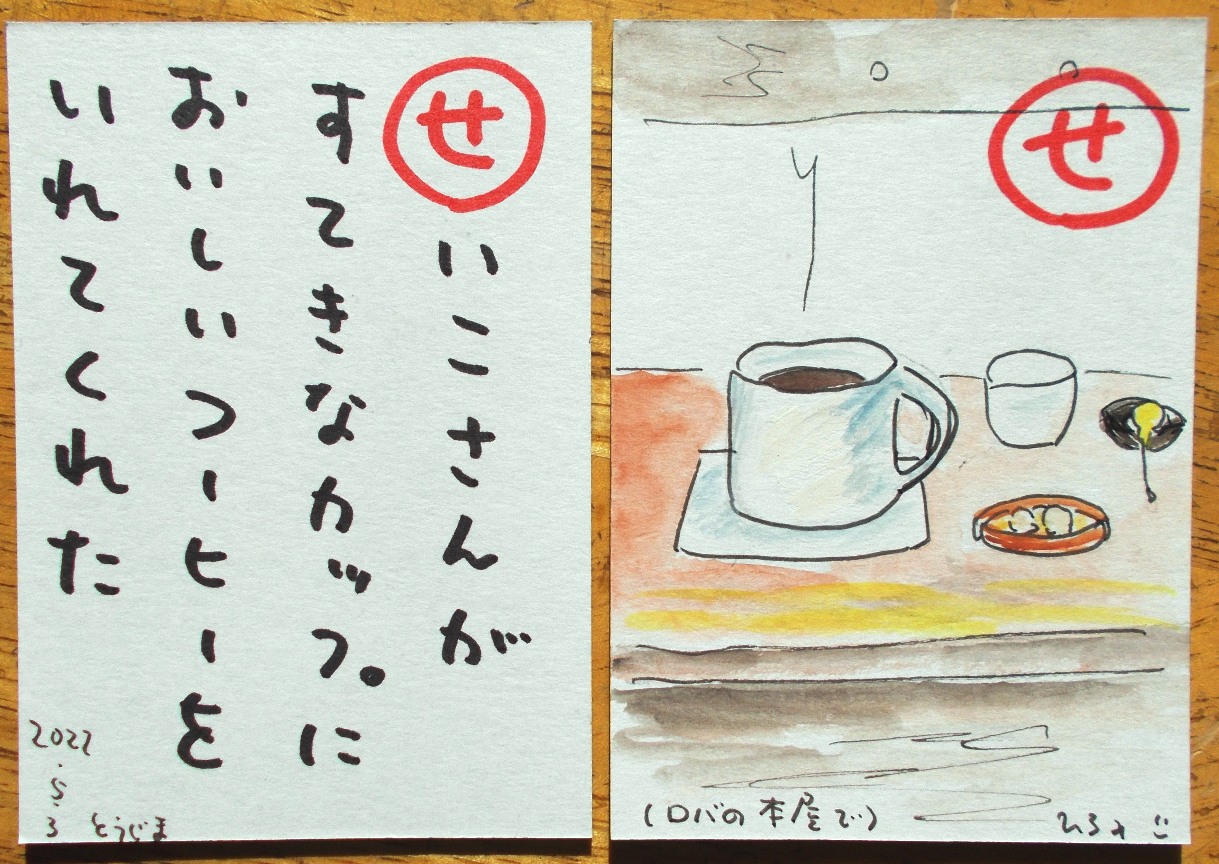 せいこさんが
すてきなカップに
おいしいコーヒーを
いれてくれた
2022.5.3
とうじま
せ
(ロバの本屋で)
ひろみ